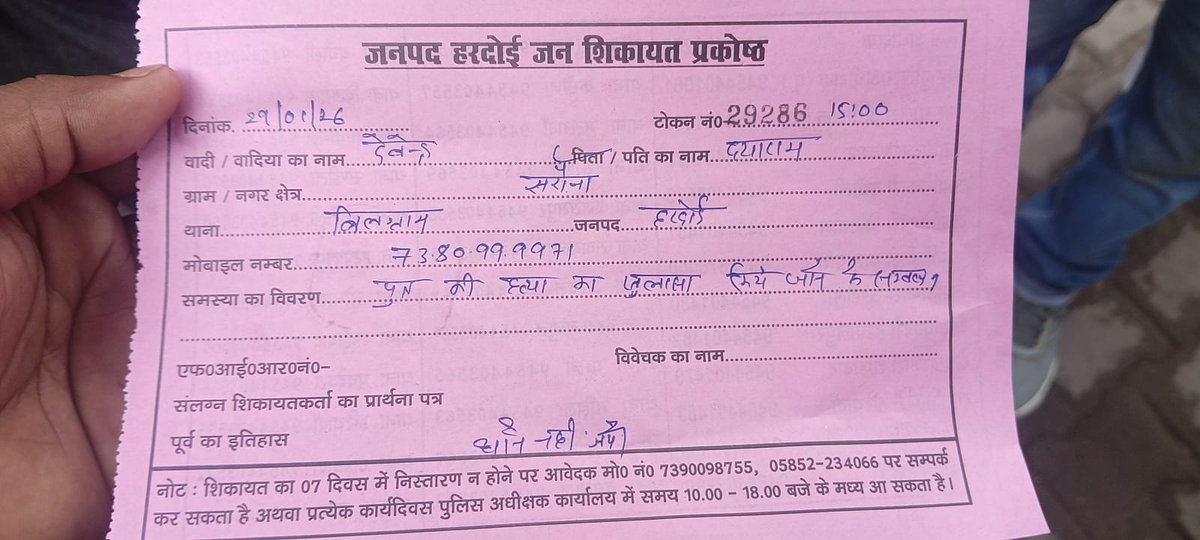 जनपद हरदोई जन शिकायत प्रकोष्ठ
दिनांक. 29/01/26 टोकन नं0-29286 15:00
वादी / वादिया का नाम देवेन्द्र पिता / पति का नाम दयाराम
ग्राम / नगर क्षेत्र सरौना
थाना बिलग्राम जनपद हरदोई
मोबाइल नम्बर 73.80.99.9971
समस्या का विवरण पुत्र की हत्या का खुलासा किये जाने के सम्बन्ध में
एफ0आई0आर0नं0- विवेचक का नाम
संलग्न शिकायतकर्ता का प्रार्थना पत्र
पूर्व का इतिहास थाने नहीं गये
नोट : शिकायत का 07 दिवस में निस्तारण न होने पर आवेदक मो0 नं0 7390098755, 05852-234066 पर सम्पर्क
कर सकता है अथवा प्रत्येक कार्यदिवस पुलिस अधीक्षक कार्यालय में समय 10.00 - 18.00 बजे के मध्य आ सकता है।